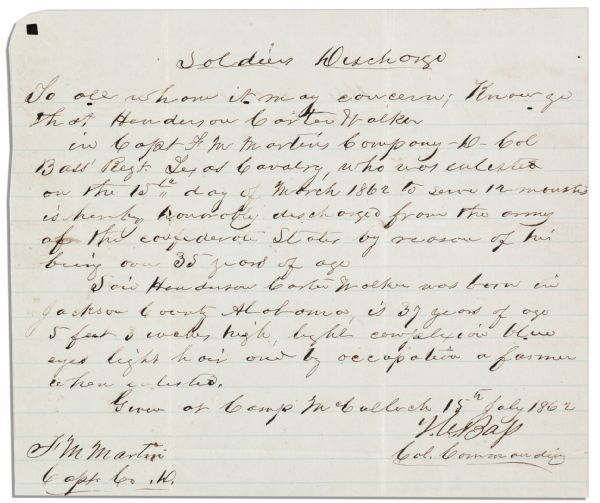 Soldiers Discharge
To all whom it may concern; Know ye
that Henderson Carter Walker
in Capt F M Martins Company - D - Col
Bass' Regt. Texas Cavalry, who was enlisted
on the 15th day of March 1862 to serve 12 months
is hereby honorably discharged from the army
of the confederate States by reason of his
being over 35 years of age
Said Henderson Carter Walker was born in
Jackson County Alabama, is 37 years of age
5 feet 3 inches high, light complexion blue
eyes light hair and by occupation a farmer
when enlisted.
Given at Camp McCulloch 15th July 1862
Bass
F M Martin
Col. Commanding
Capt. Co. D.